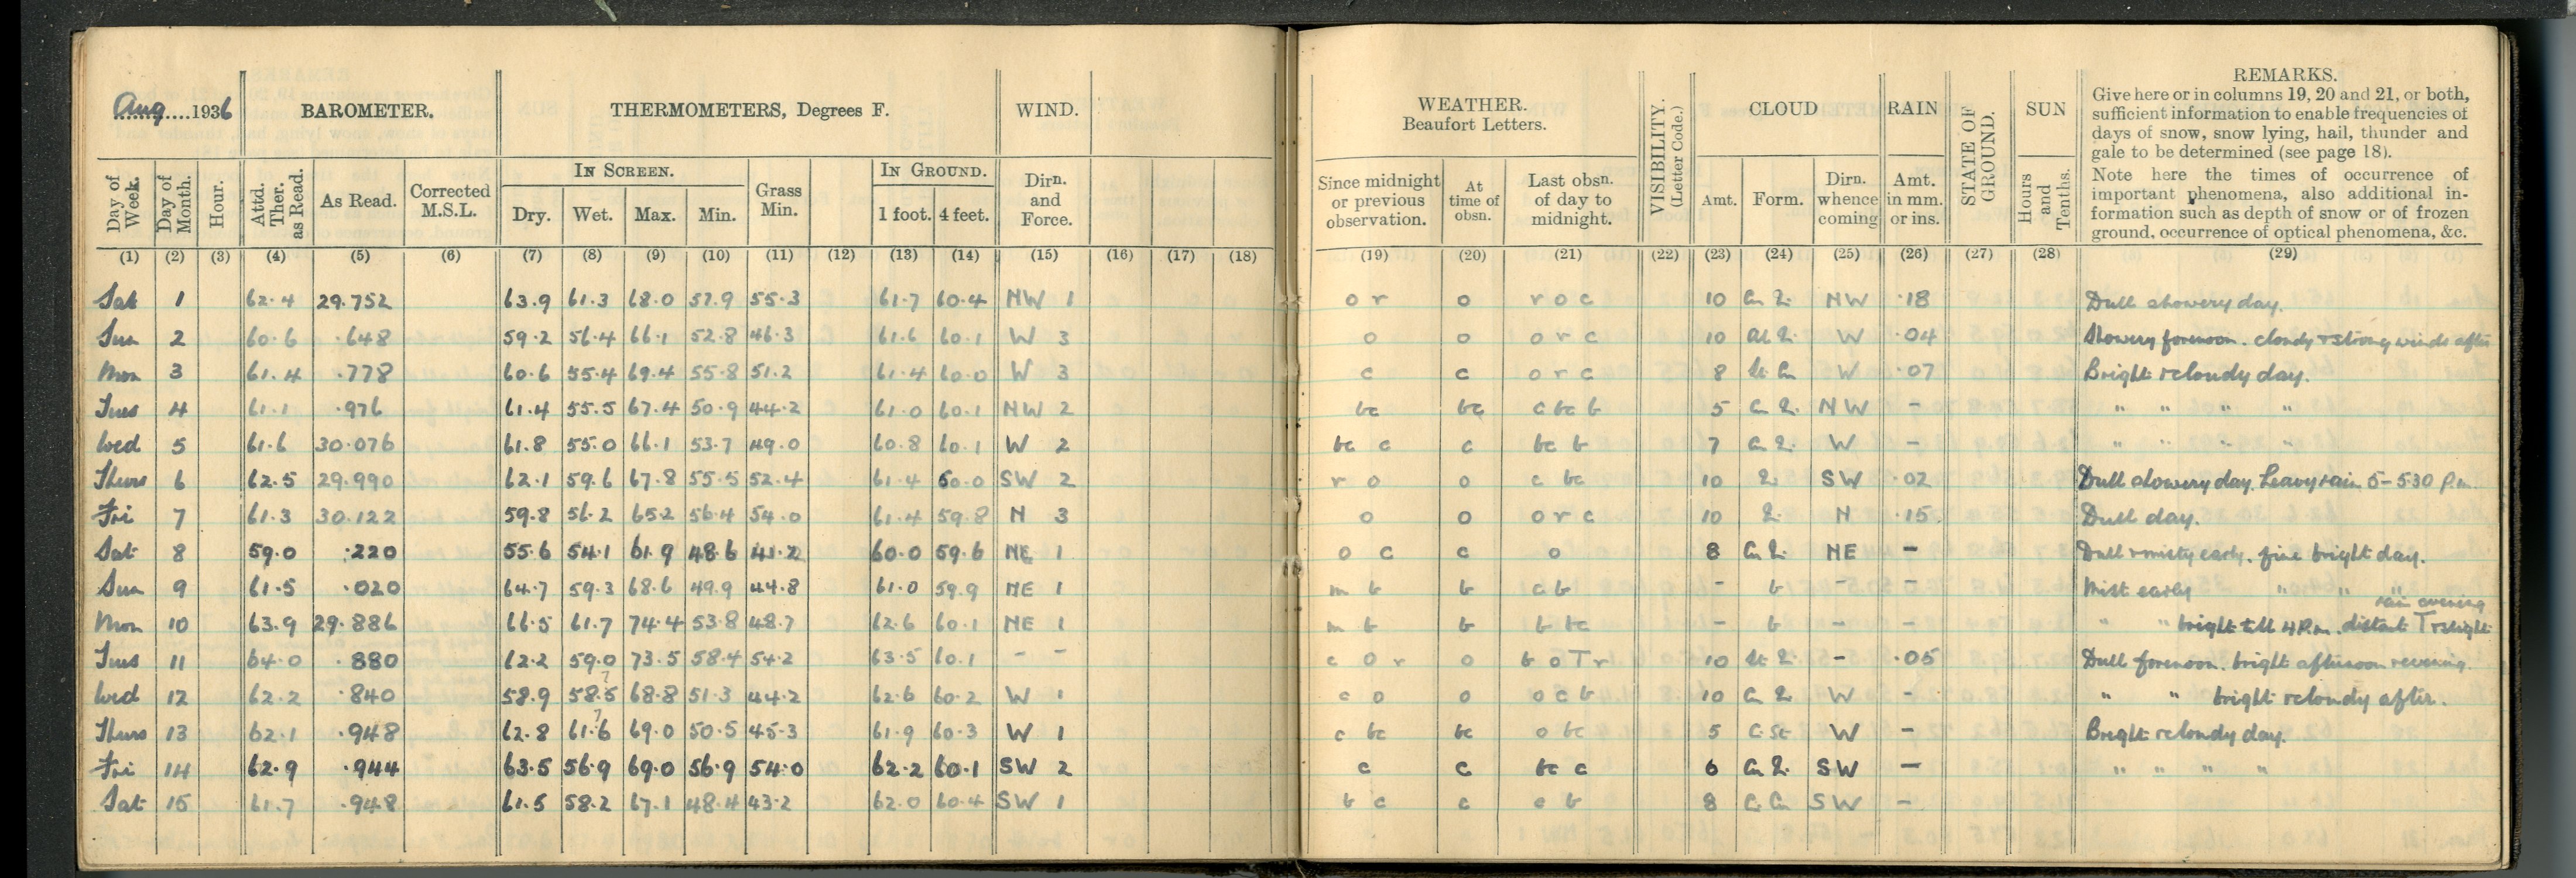 Aug....1936 BAROMETER. THERMOMETERS, Degrees F. WIND.
IN SCREEN. IN GROUND.
Day of Week. Day of Month. Hour. Attd. Ther. as Read. As Read. Corrected M.S.L. Dry. Wet. Max. Min. Grass Min. 1 foot. 4 feet. Dirn. and Force.
(1) (2) (3) (4) (5) (6) (7) (8) (9) (10) (11) (12) (13) (14) (15) (16) (17) (18)
Sat 1 62.4 29.752 63.9 61.3 68.0 57.9 55.3 61.7 60.4 NW 1
Sun 2 60.6 .648 59.2 56.4 66.1 52.8 46.3 61.6 60.1 W 3
Mon 3 61.4 .778 60.6 55.4 69.4 55.8 51.2 61.4 60.0 W 3
Tues 4 61.1 .976 61.4 55.5 67.4 50.9 44.2 61.0 60.1 NW 2
Wed 5 61.6 30.076 61.8 55.0 66.1 53.7 49.0 60.8 60.1 W 2
Thurs 6 62.5 29.990 62.1 59.6 67.8 55.5 52.4 61.4 60.0 SW 2
Fri 7 61.3 30.122 59.8 56.2 65.2 56.4 54.0 61.4 59.8 N 3
Sat 8 59.0 .220 55.6 54.1 61.9 48.6 41.2 60.0 59.6 NE 1
Sun 9 61.5 .020 64.7 59.3 68.6 49.9 44.8 61.0 59.9 NE 1
Mon 10 63.9 29.886 66.5 61.7 74.4 53.8 48.7 62.6 60.1 NE 1
Tues 11 64.0 .880 62.2 59.0 73.5 58.4 54.2 63.5 60.1 - -
Wed 12 62.2 .840 58.9 58.5? 68.8 51.3 44.2 62.6 60.2 W 1
Thurs 13 62.1 .948 62.8 61.6? 69.0 50.5 45.3 61.9 60.3 W 1
Fri 14 62.9 .944 63.5 56.9 69.0 56.9 54.0 62.2 60.1 SW 2
Sat 15 61.7 .948 61.5 58.2 67.1 48.4 43.2 62.0 60.4 SW 1
WEATHER. Beaufort Letters. VISIBILITY. (Letter Code.) CLOUD RAIN STATE OF GROUND. SUN
REMARKS.
Give here or in columns 19, 20 and 21, or both,
sufficient information to enable frequencies of
days of snow, snow lying, hail, thunder and
gale to be determined (see page 18).
Note here the times of occurrence of
important phenomena, also additional in-
formation such as depth of snow or of frozen
ground, occurrence of optical phenomena, &c.
Since midnight or previous observation. At time of obsn. Last obsn. of day to midnight. Amt. Form. Dirn. whence coming Amt. in mm. or ins. Hours and Tenths.
(19) (20) (21) (22) (23) (24) (25) (26) (27) (28) (29)
o r o r o c 10 NW .18 Dull showery day.
o o o r c 10 W .04 Showery forenoon. cloudy & strong winds after
c c o r c 8 W .07 Bright & cloudy day.
bc bc c bc b 5 NW - " " " "
bc c c bc b 7 W - " " " "
r o o c bc 10 SW .02 Dull showery day. Heavy rain 5-5.30 P.m.
o o o r c 10 N .15 Dull day.
o c c o 8 NE - Dull & misty early. fine bright day.
m b b c b - b - - Mist early " " "
rain evening
m b b b bc - b - - " " bright till 4 P.m. distant T & slight
c o r o b o T r 10 - .05 Dull forenoon. bright afternoon & evening.
c o o o c b 10 W - " " bright & cloudy after.
c bc bc o bc 5 W - Bright & cloudy day.
c c bc c 6 SW - " " " "
b c c c b 8 SW -